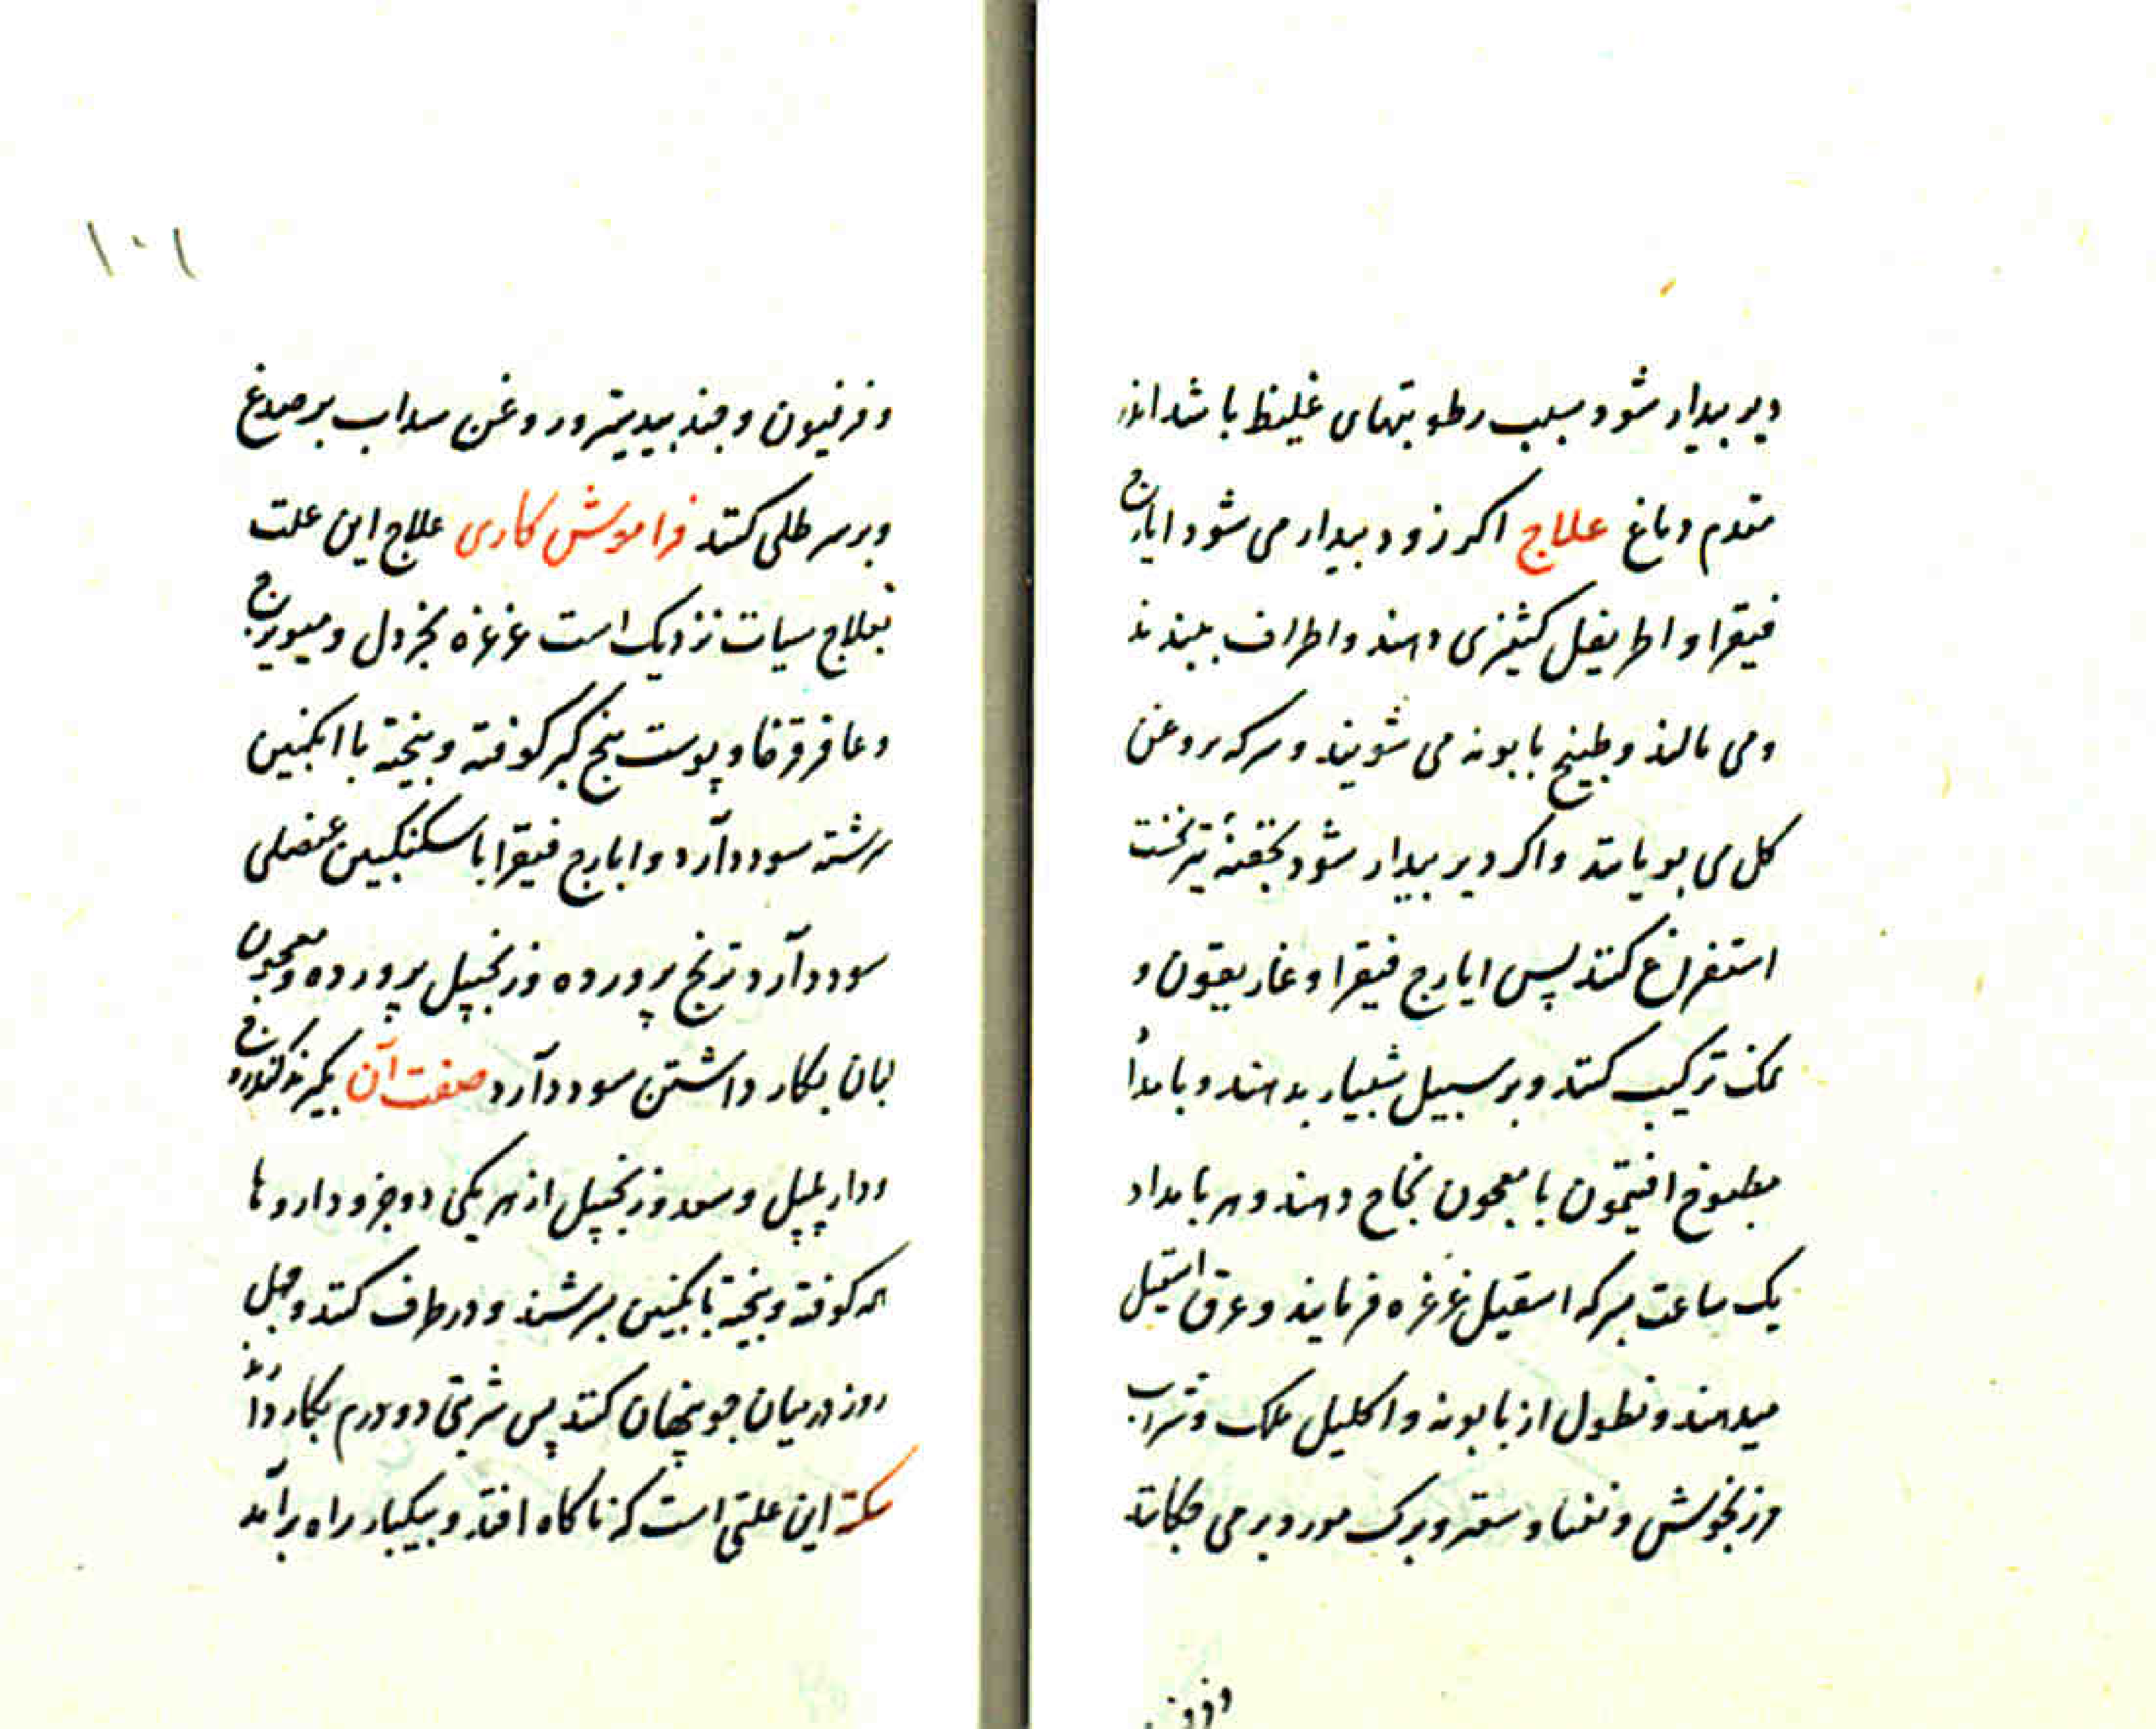 دیر بیدار شود بسبب رطوبتهای غلیظ باشد اندر
مقدم دماغ علاج اکر زود بیدار می شود ایارج
فیقرا و اطریفل کشنیزی دهند و اطراف ببندند
و می مالند و طبیخ بابونه می شویند و سرکه بروغن
کل می بویانند و اکر دیر بیدار شود بحقنهٔ تیز نخست
استفراغ کنند پس ایارج فیقرا و غاریقون و
نمک ترکیب کنند و بر سبیل شبیار بدهند و بامداد
مطبوخ افتیمون با معجون نجاح دهند و هر بامداد
یک ساعت بسرکه اسقیل غرغره فرمایند و عرق اسقیل
میدهند و نطول از بابونه و اکلیل ملک و شراب
مرزنجوش و نعناو سعتر و برک مورد بر می چکانند
و فرفیون
۱۰۱
و فرفیون و جند بیدستر و روغن سداب بر صدغ
و بر سر طلی کنند فراموش کاری علاج این علت
بعلاج سبات نزدیک است غرغره بخردل و میویزج
و عاقرقرحا و پوست بیخ کبر کوفته و بیخته با انکبین
سرشته سود دارد و ایارج فیقرا با سکنکبین عنصلی
سود دارد ترنج پرورده و زنجبیل پرورده و معجون
لبان بکار داشتن سود دارد صفت آن بکیرند کندر و وج
و دار پلپل و سعد و زنجبیل از هر یکی دو جزو داروها
همه کوفته و بیخته بانکبین بسرشند و در ظرف کنند و چهل
روز در میان جو پنهان کنند پس شربتی دو درم بکار دارند
سکته این علتی است که ناکاه افتد و بیکبار راه برآمد